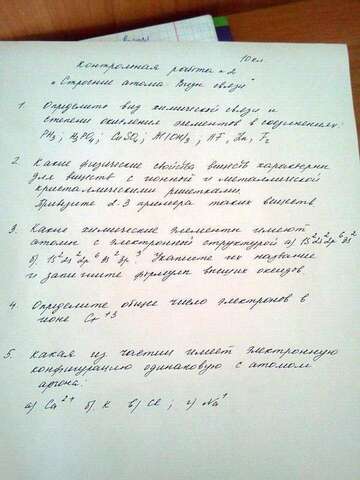 10 кл.
Контрольная работа № 2
"Строение атома. Виды связи"
1. Определите вид химической связи и
степени окисления элементов в соединениях:
PH3; H3PO4; CuSO4; Al(OH)3; HF, Zn, F2
2. Какие физические свойства веществ характерны
для веществ с ионной и металлической
кристаллическими решетками.
Приведите 2-3 примера таких веществ
3. Какие химические элементы имеют
атомы с электронной структурой а) 1s²2s²2p⁶3s
б) 1s²2s²2p⁶3s²3p³ Укажите их название
и запишите формулы высших оксидов.
4. Определите общее число электронов в
ионе Cr⁺³
5. Какая из частиц имеет электронную
конфигурацию одинаковую с атомом
аргона:
а) Ca²⁺ б) K в) Cl; г) Na⁺